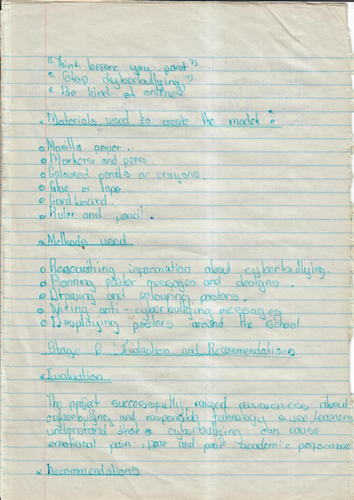 "Think before you post"
"Stop cyberbullying"
"Be kind at online"
* Materials used to create the model:
o Manilla paper.
o Markers and pens.
o Coloured pencils or crayons
o Glue or tape
o Cardboard.
o Ruler and pencil.
* Methods used
o Researching information about cyberbullying.
o Planning poster messages and designs.
o Drawing and colouring posters.
o Writing anti-cyberbullying messages
o Displaying posters around the school
Stage 6: Evaluation and Recommendations
* Evaluation
The project successfully raised about
cyberbullying and responsible learners
understand that cyberbullying can cause
emotional pain, and poor academic performance
* Recommendations